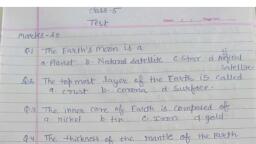 Class-5
Test
Marks-20
Q.1 The Earth's moon is a
a. Planet b. Natural satellite c. Star d.
satellite
Q.2 The top most layer of the Earth is called
a. crust b. corona d. Surface.
Q.3 The inner core of Earth is composed of
a. nickel b. tin c. Iron d. gold
Q.4 The thickness of the mantle of the Earth